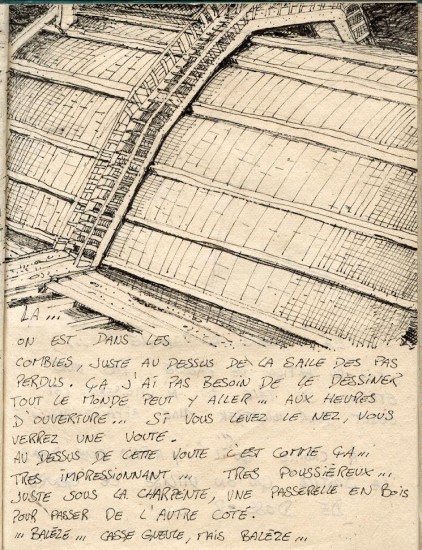 LA ...
ON EST DANS LES
COMBLES, JUSTE AU DESSUS DE LA SALLE DES PAS
PERDUS. ÇA J'AI PAS BESOIN DE LE DESSINER
TOUT LE MONDE PEUT Y ALLER ... AUX HEURES
D'OUVERTURE ... SI VOUS LEVEZ LE NEZ, VOUS
VERREZ UNE VOUTE.
AU DESSUS DE CETTE VOUTE C'EST COMME ÇA ...
TRES IMPRESSIONNANT ... TRES POUSSIÈREUX ...
JUSTE SOUS LA CHARPENTE, UNE PASSERELLE EN BOIS
POUR PASSER DE L'AUTRE COTÉ.
... BALÈZE ... CASSE GUEULE, MAIS BALÈZE ...